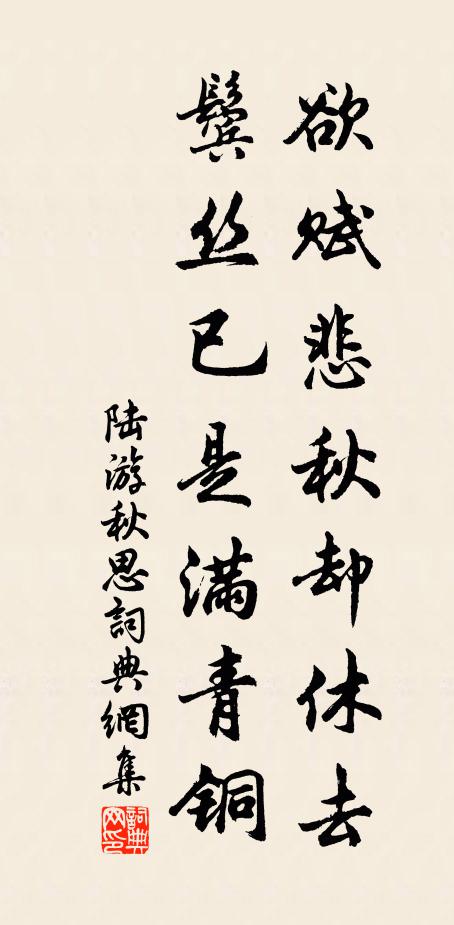 欲赋悲秋却休去
鬓丝已是满青铜
陆游秋思詞典網集
詞典网印